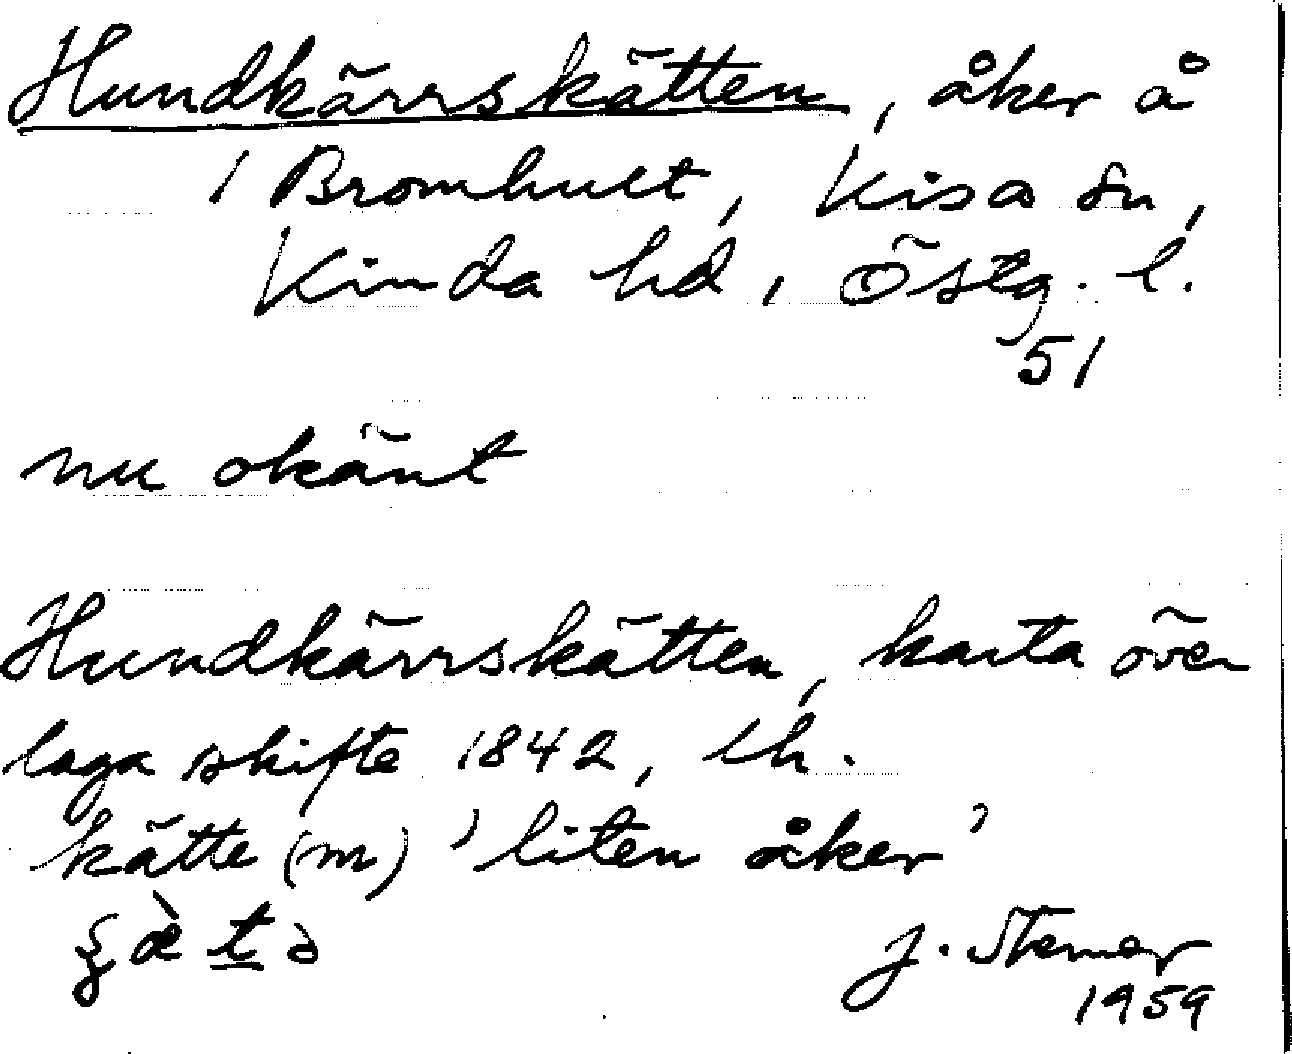 Hundkärrskätten, åker å
1 Bromhult, Kisa sn,
Kinda hd, Östg. l.
51
nu okänt
Hundkärrskätten, karta över
laga skifte 1842, lh.
kätte (m) 'liten åker'
J. Sterner
1959